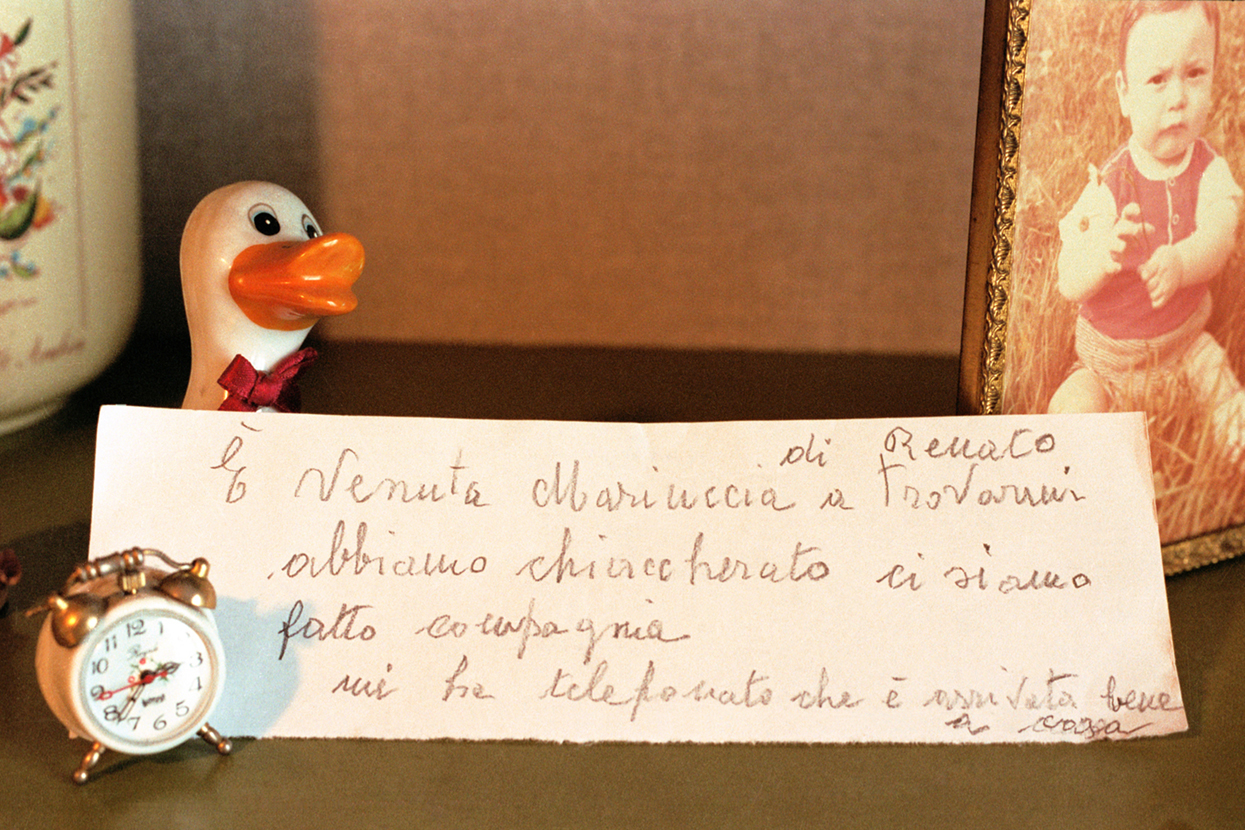 di Renato
È Venuta Mariuccia a Trovarmi
abbiamo chiaccherato ci siamo
fatto compagnia
mi ha telefonato che è arrivata bene
a casa
12
1
2
3
4
5
6
7
8
9
10
11